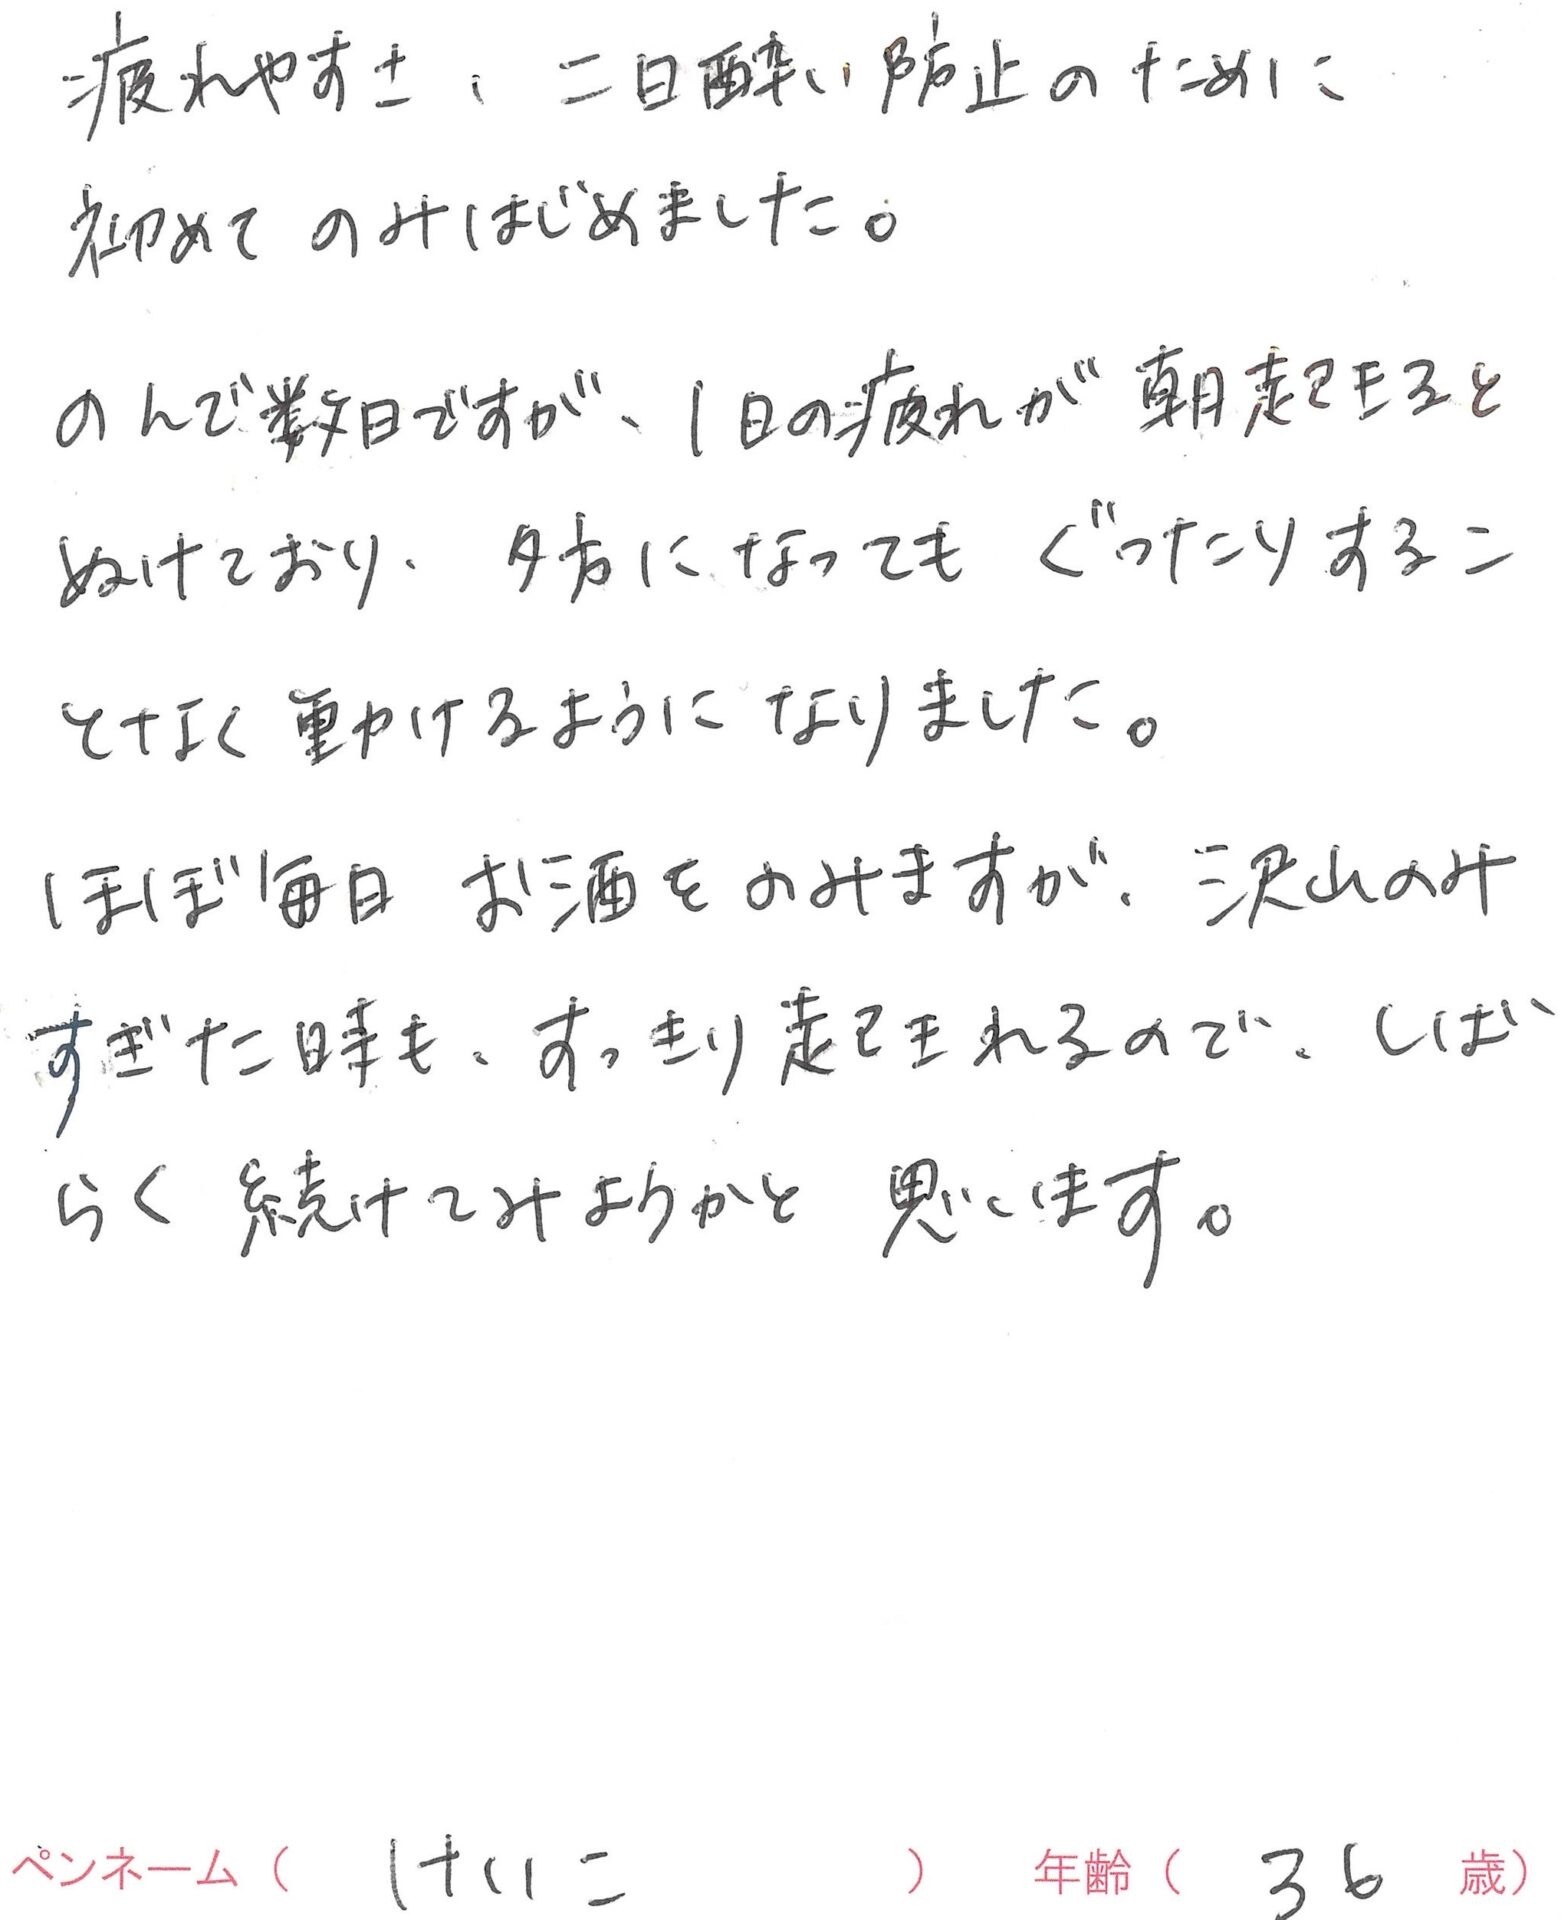 疲れやすさ、二日酔い防止のために
初めてのみはじめました。
のんで数日ですが、1日の疲れが朝起きると
ぬけており、夕方になってもぐったりするこ
となく動けるようになりました。
ほぼ毎日お酒をのみますが、沢山のみ
すぎた時も、すっきり起きれるので、しば
らく続けてみようかと思います。
ペンネーム（ けいこ ） 年齢（ 36 歳）